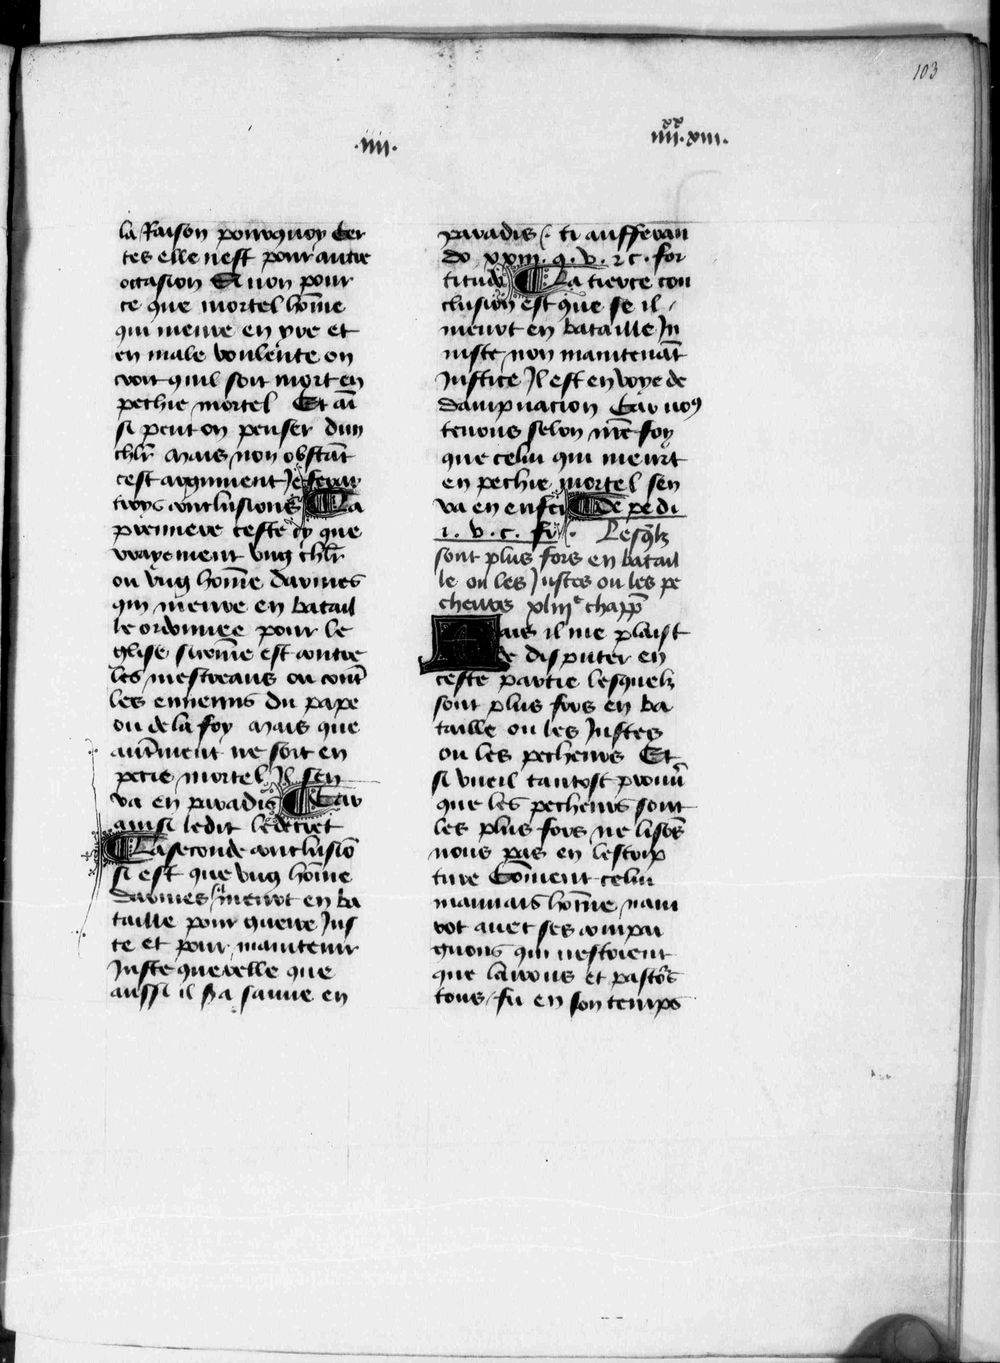 103
.iiii.
iiii.xx xiii.
la Raison pourquoy Cer
tes elle nest pour autre
occasion Si non pour
ce que mortel hōme
qui meurt en yre et
en male voulente on
voit quil soit mort en
pechie mortel Et ai
si peut on penser dun
chlr̄ Mais non obstāt
cest argument Je feray
troys conclusions ¶ La
premiere ceste cy que
vrayement vng chlr̄
ou vng hōme darmes
qui meure en batail
le ordonnee pour le
glise sicōme est contre
les mescreans ou contr̄
les ennemis du pape
ou de la foy Mais que
autr̄ment ne soit en
pechie mortel Il sen
va en paradis ¶ Car
ainsi le dit le decret
¶ La seconde conclusiō
si est que vng hōme
darmes meurt en ba
taille pour guerre Jus
te et pour maintenir
Juste querelle que
aussi il sera sauue en
paradis
do xxiii. q. v. 2 c. for
titudo ¶ La tierce con
clusion est que se il
meurt en bataille In
iuste non maintenāt
Justice Il est en voye de
dampnacion Car nous
tenons selon nr̄e foy
que celui qui meurt
en pechie mortel sen
va en enfer ¶ De pe di
i. v. c. Lesqlz
sont plus fors en batail
le ou les Justes ou les pe
cheurs xliiie chapp̄
Mais il me plaist
de disputer en
ceste partie lesquelz
sont plus fors en ba
taille ou les Justes
ou les pecheurs Et
si vueil tantost prouu̾
que les pecheurs sont
les plus fors ne lisōs
nous pas en lescrip
ture Cōment celui
mauuais hōme nam
rot auec ses compai
gnons qui nestoient
que larrons et pastōs
tous fu en son temps